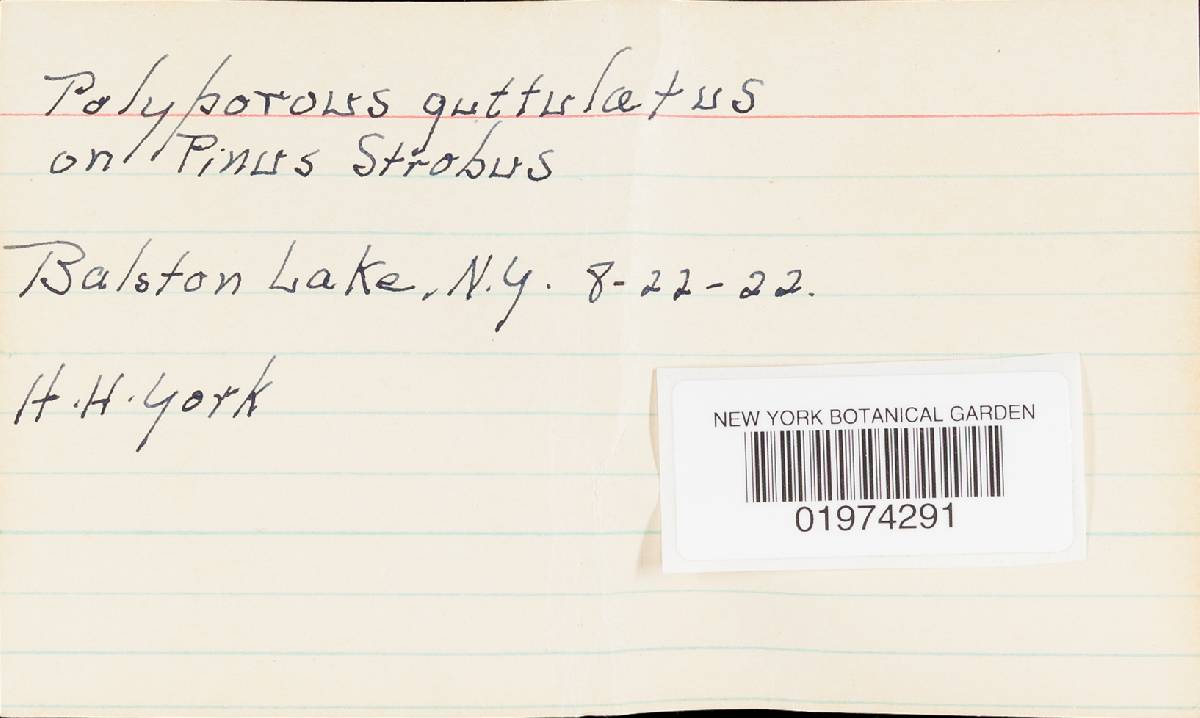 Polyporous guttulatus
on Pinus Strobus
Balston Lake, N.Y. 8-22-22.
H.H. York
NEW YORK BOTANICAL GARDEN
01974291